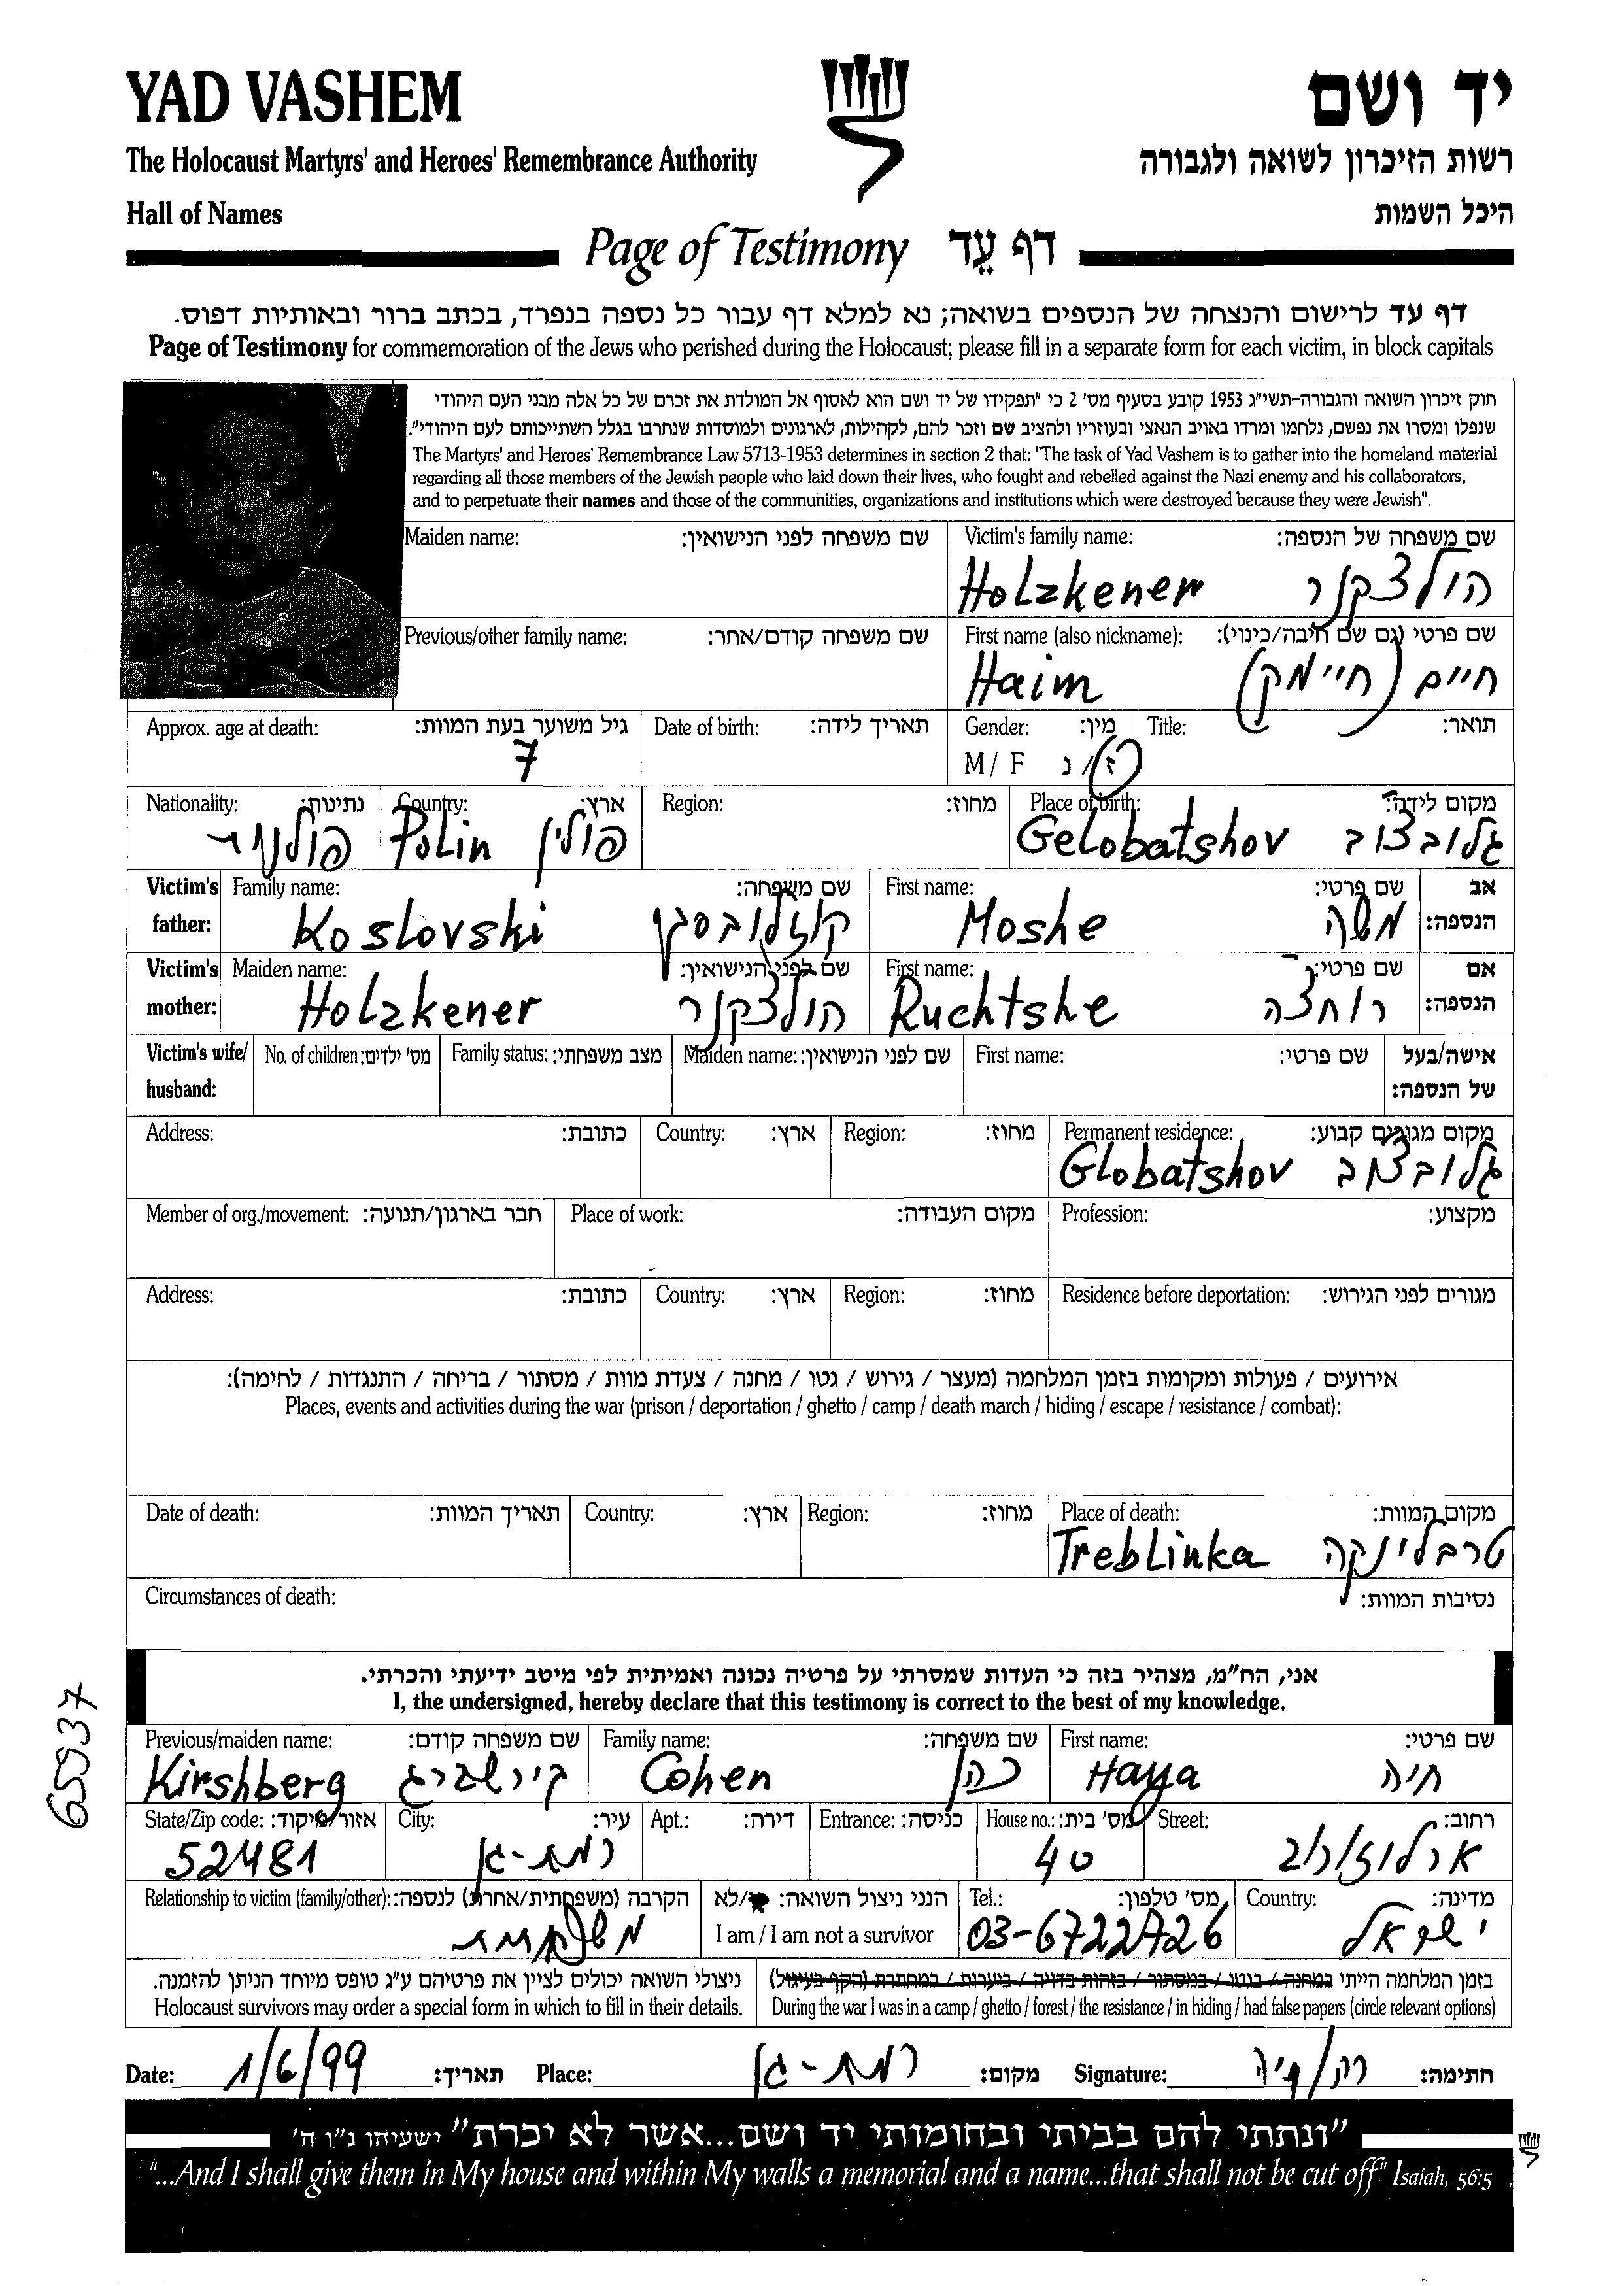 YAD VASHEM
יד ושם
The Holocaust Martyrs' and Heroes' Remembrance Authority
רשות הזיכרון לשואה ולגבורה
Hall of Names
היכל השמות
Page of Testimony דף עֵד
דף עד לרישום והנצחה של הנספים בשואה; נא למלא דף עבור כל נספה בנפרד, בכתב ברור ובאותיות דפוס.
Page of Testimony for commemoration of the Jews who perished during the Holocaust; please fill in a separate form for each victim, in block capitals
חוק זיכרון השואה והגבורה-תשי"ג 1953 קובע בסעיף מס' 2 כי "תפקידו של יד ושם הוא לאסוף אל המולדת את זכרם של כל אלה מבני העם היהודי
שנפלו ומסרו את נפשם, נלחמו ומרדו באויב הנאצי ובעוזריו ולהציב שם וזכר להם, לקהילות, לארגונים ולמוסדות שנחרבו בגלל השתייכותם לעם היהודי".
The Martyrs' and Heroes' Remembrance Law 5713-1953 determines in section 2 that: "The task of Yad Vashem is to gather into the homeland material
regarding all those members of the Jewish people who laid down their lives, who fought and rebelled against the Nazi enemy and his collaborators,
and to perpetuate their names and those of the communities, organizations and institutions which were destroyed because they were Jewish".
Maiden name: שם משפחה לפני הנישואין: Victim's family name: שם משפחה של הנספה:
Holzkener הולצקנר
Previous/other family name: שם משפחה קודם/אחר: First name (also nickname): שם פרטי (גם שם חיבה/כינוי):
Haim חיים (חיימק)
Approx. age at death: גיל משוער בעת המוות: Date of birth: תאריך לידה: Gender: מין: Title: תואר:
7 M / F ז/נ
Nationality: נתינות: Country: ארץ: Region: מחוז: Place of birth: מקום לידה:
Polin פולין Gelobatshov גלובצוב
Victim's Family name: שם משפחה: First name: שם פרטי: אב
father: Koslovski Moshe משה הנספה:
Victim's Maiden name: שם לפני הנישואין: First name: שם פרטי: אם
mother: Holzkener הולצקנר Ruchtshe רוחצה הנספה:
Victim's wife/ No. of children: מס' ילדים: Family status: מצב משפחתי: Maiden name: שם לפני הנישואין: First name: שם פרטי: אישה/בעל
husband: של הנספה:
Address: כתובת: Country: ארץ: Region: מחוז: Permanent residence: מקום מגורים קבוע:
Globatshov גלובצוב
Member of org./movement: חבר בארגון/תנועה: Place of work: מקום העבודה: Profession: מקצוע:
Address: כתובת: Country: ארץ: Region: מחוז: Residence before deportation: מגורים לפני הגירוש:
אירועים / פעולות ומקומות בזמן המלחמה (מעצר / גירוש / גטו / מחנה / צעדת מוות / מסתור / בריחה / התנגדות / לחימה):
Places, events and activities during the war (prison / deportation / ghetto / camp / death march / hiding / escape / resistance / combat):
Date of death: תאריך המוות: Country: ארץ: Region: מחוז: Place of death: מקום המוות:
Treblinka טרבלינקה
Circumstances of death: נסיבות המוות:
אני, הח"מ, מצהיר בזה כי העדות שמסרתי על פרטיה נכונה ואמיתית לפי מיטב ידיעתי והכרתי.
I, the undersigned, hereby declare that this testimony is correct to the best of my knowledge.
65937
Previous/maiden name: שם משפחה קודם: Family name: שם משפחה: First name: שם פרטי:
Kirshberg קירשברג Cohen כהן Haya חיה
State/Zip code: אזור/מיקוד: City: עיר: Apt.: דירה: Entrance: כניסה: House no.: מס' בית: Street: רחוב:
52481 רמת-גן 40 ארלוזורוב
Relationship to victim (family/other): הקרבה (משפחתית/אחרת) לנספה: הנני ניצול השואה: /לא Tel.: מס' טלפון: Country: מדינה:
משפחתית I am / I am not a survivor 03-6722726 ישראל
ניצולי השואה יכולים לציין את פרטיהם ע"ג טופס מיוחד הניתן להזמנה. בזמן המלחמה הייתי במחנה / בגטו / במסתור / בזהות בדויה / ביערות / במחתרת (הקף בעיגול)
Holocaust survivors may order a special form in which to fill in their details. During the war I was in a camp / ghetto / forest / the resistance / in hiding / had false papers (circle relevant options)
Date: 1/6/99 תאריך: Place: רמת-גן מקום: Signature: חתימה:
"ונתתי להם בביתי ובחומותי יד ושם...אשר לא יכרת" ישעיהו נ"ו ה'
"...And I shall give them in My house and within My walls a memorial and a name...that shall not be cut off" Isaiah, 56:5